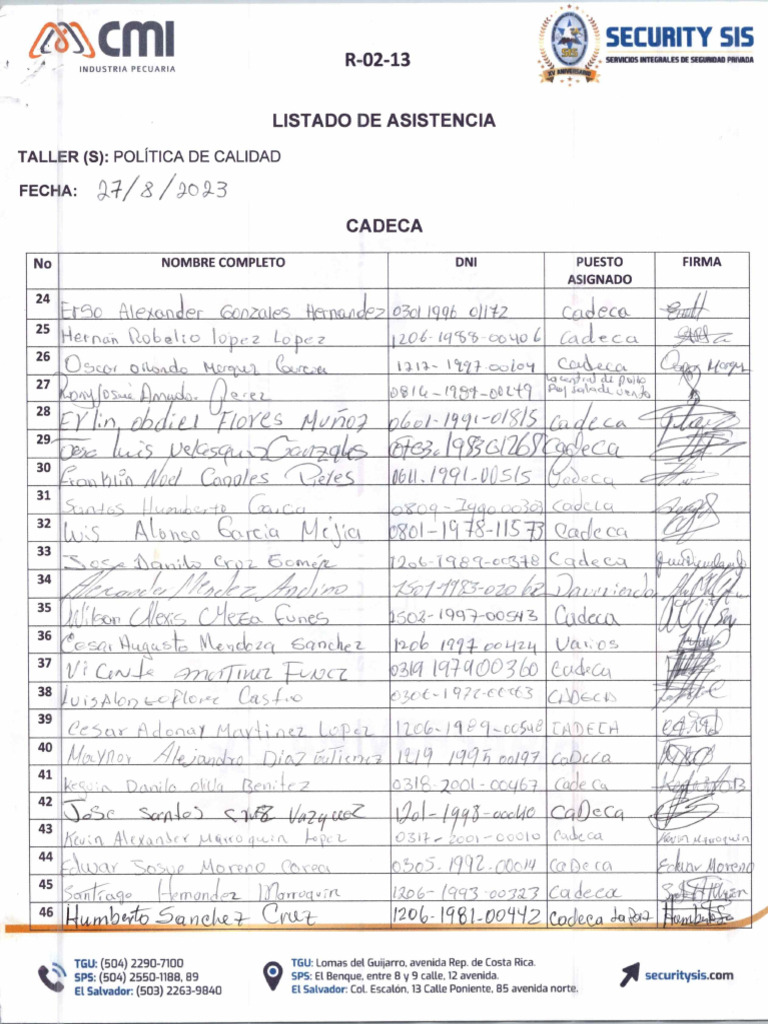 CMI
INDUSTRIA PECUARIA
R-02-13
SIS
XV ANIVERSARIO
SECURITY SIS
SERVICIOS INTEGRALES DE SEGURIDAD PRIVADA
LISTADO DE ASISTENCIA
TALLER (S): POLÍTICA DE CALIDAD
FECHA: 27/8/2023
CADECA
No NOMBRE COMPLETO DNI PUESTO ASIGNADO FIRMA
24 Ergo Alexander Gonzales Hernandez 0301 1996 01172 Cadeca
25 Hernan Robelio lopez Lopez 1206-1988-00406 Cadeca
26 Oscar Orlando Marquez 1217-1997-00104 Cadeca Oscar Marquez
27 Rony Josué Perez 0816-1987-00249
28 Erlin obdiel Flores Muñoz 0601-1991-01815 Cadeca
29 Jose Luis Velasquez Gonzales Cadeca
30 Franklin Noel Canales 0611-1991-00515 Cadeca
31 Santos Humberto Garcia Cadeca
32 Luis Alonso Garcia Mejia 0801-1978-11573 Cadeca
33 Jose Danilo Cruz Gomez 1206-1989-00378 Cadeca
34 Alexander Mendez Andino 1501-1983-02062
35 Wilson Alexis Meza Funes 1503-1997-00543 Cadeca
36 Cesar Augusto Mendoza Sanchez 1206 1997 00424 Varios
37 Vicente Martinez Funez 0319 1979 00360 Cadeca
38 Luis Alonso Flores Castro CADECA
39 Cesar Adonay Martinez Lopez 1206-1989-00548 CADECA
40 Maynor Alejandro Diaz Gutierrez 1219 1995 00197 caDeca
41 Danilo oliva Benitez 0318-2001-00467 cadeca
42 Jose Santos Cruz Vazquez 1201-1998-00040 caDeca
43 Kevin Alexander Marroquin Lopez 0317-2001-00010 cadeca Kevin Marroquin
44 Edwar Josue Moreno Correa 0305-1992-00014 caDeca Edwar Moreno
45 Santiago Hernandez Marroquin 1206-1993-00323 cadeca
46 Humberto Sanchez Cruz 1206-1981-00442 cadeca La Paz Humberto
TGU: (504) 2290-7100
SPS: (504) 2550-1188, 89
El Salvador: (503) 2263-9840
TGU: Lomas del Guijarro, avenida Rep. de Costa Rica.
SPS: El Benque, entre 8 y 9 calle, 12 avenida.
El Salvador: Col. Escalón, 13 Calle Poniente, 85 avenida norte.
securitysis.com